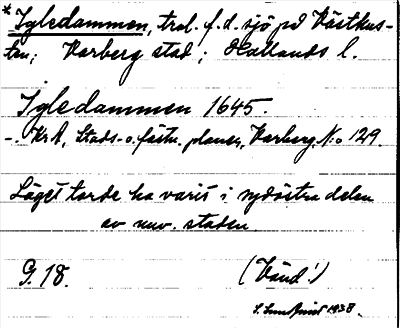 * Igledammen, trol. f.d. sjö på Västkus-
ten; Varberg stad; Hallands l.
Igledammen 1645.
-. KrA, Stads- o. fästn. planer, Varberg N:o 129.
Läget torde ha varit i sydöstra delen
av nuv. staden
G. 18. (Vänd!)
S. Lundquist 1938.